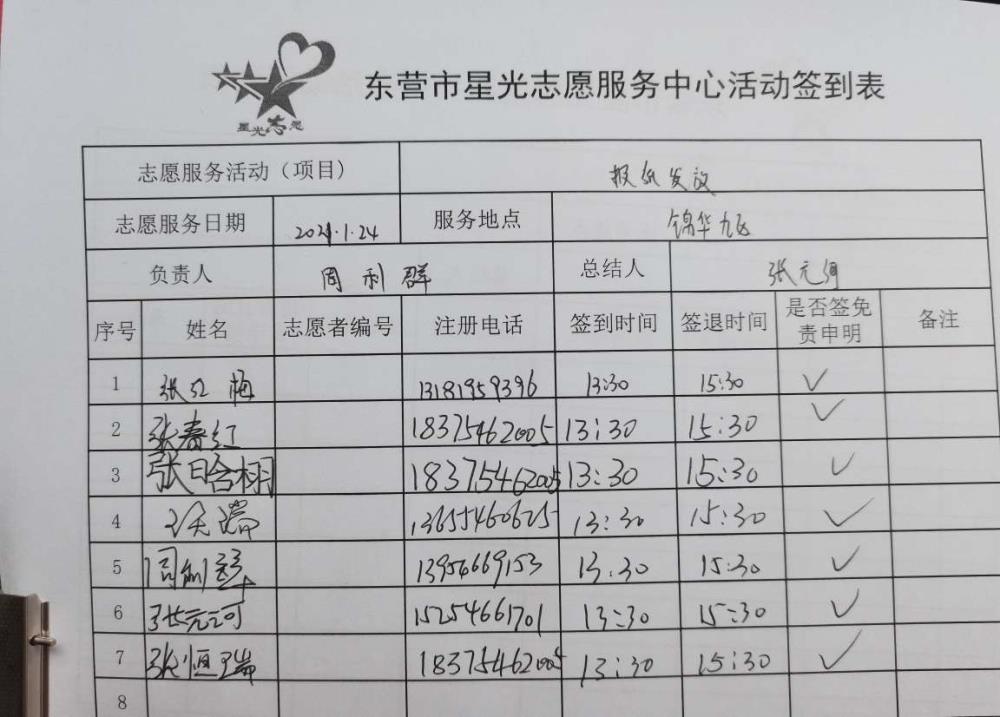 星光志愿
东营市星光志愿服务中心活动签到表
志愿服务活动（项目） 报纸发放
志愿服务日期 2021.1.24 服务地点 锦华九区
负责人 周利群 总结人 张元河
序号 姓名 志愿者编号 注册电话 签到时间 签退时间 是否签免责申明 备注
1 张红梅 13181959396 13:30 15:30 ✓
2 张春红 18375462005 13:30 15:30 ✓
3 张晗栩 18375462005 13:30 15:30 ✓
4 瑞 13655460625 13:30 15:30 ✓
5 周利群 13954669153 13:30 15:30 ✓
6 张元河 15254661701 13:30 15:30 ✓
7 张恒瑞 18375462005 13:30 15:30 ✓
8